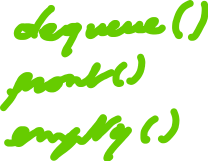 dequeue()
front()
empty()